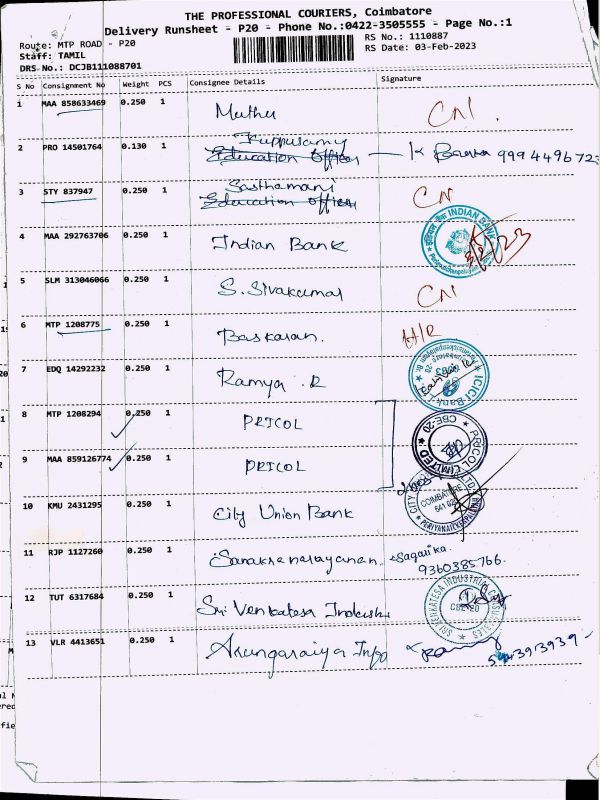 THE PROFESSIONAL COURIERS, Coimbatore
Delivery Runsheet - P20 - Phone No.:0422-3505555 - Page No.:1
Route: MTP ROAD - P20
RS No.: 1110887
Staff: TAMIL
RS Date: 03-Feb-2023
DRS No.: DCJB111088701
S No Consignment No Weight PCS Consignee Details Signature
1 MAA 858633469 0.250 1 Muthu CN1.
2 PRO 14501764 0.130 1 Kuppusamy Education Officer K Banu
3 STY 837947 0.250 1 Sasthamani Education Officer CN
4 MAA 292763706 0.250 1 Indian Bank INDIAN BANK 3/2/23
5 SLM 313046066 0.250 1 S. Sivakumar CN1
6 MTP 1208775 0.250 1 Baskaran. H/R
7 EDQ 14292232 0.250 1 Ramya .R ICICI Bank
8 MTP 1208294 0.250 1 PRICOL PRICOL LIMITED CBE-20
9 MAA 859126774 0.250 1 PRICOL
10 KMU 2431295 0.250 1 City Union Bank CITY COIMBATORE 641 020
11 RJP 1127260 0.250 1 Sagarika. 9360385766.
12 TUT 6317684 0.250 1 Sri Venkatesa SRI VENKATESA INDUSTRIAL CBE-20
13 VLR 4413651 0.250 1 Info